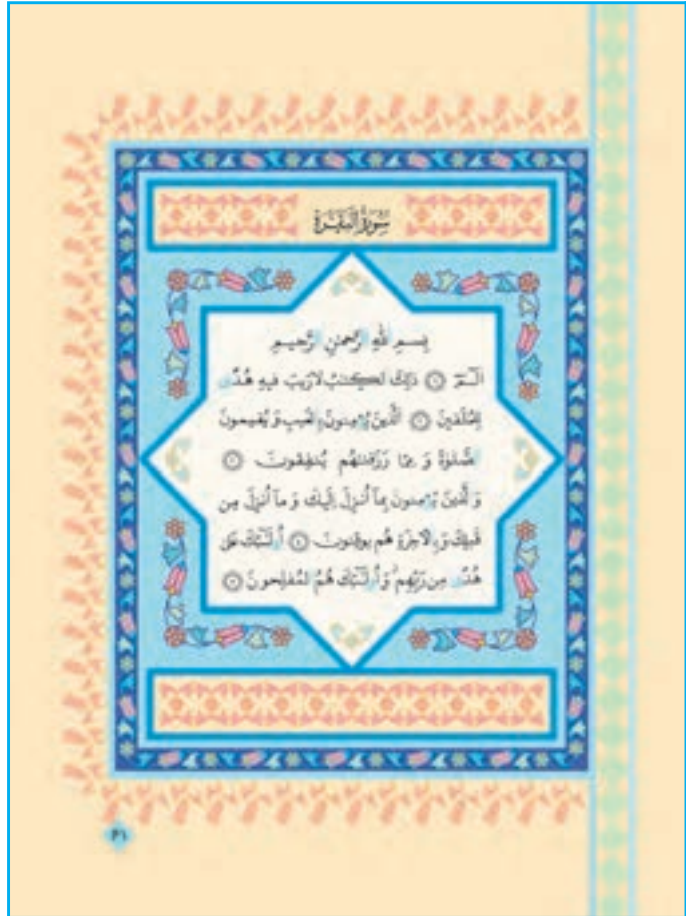 سُورَةُ الْبَقَرَةِ
بِسمِ اللهِ الرَّحمٰنِ الرَّحیمِ
الٓـمٓ ۝ ذٰلِكَ الكِتٰبُ لارَیبَ فیهِ هُدًی
لِلمُتَّقینَ ۝ اَلَّذینَ یُؤمِنونَ بِالغَیبِ وَ یُقیمونَ
الصَّلوٰةَ وَ مِمّا رَزَقنٰهُم یُنفِقونَ ۝
وَ الَّذینَ یُؤمِنونَ بِمآ اُنزِلَ اِلَیكَ وَ مآ اُنزِلَ مِن
قَبلِكَ وَ بِالاٰخِرَةِ هُم یوقِنونَ ۝ اُولٰٓئِكَ عَلیٰ
هُدًی مِن رَبِّهِم وَ اُولٰٓئِكَ هُمُ المُفلِحونَ ۝
۲۱